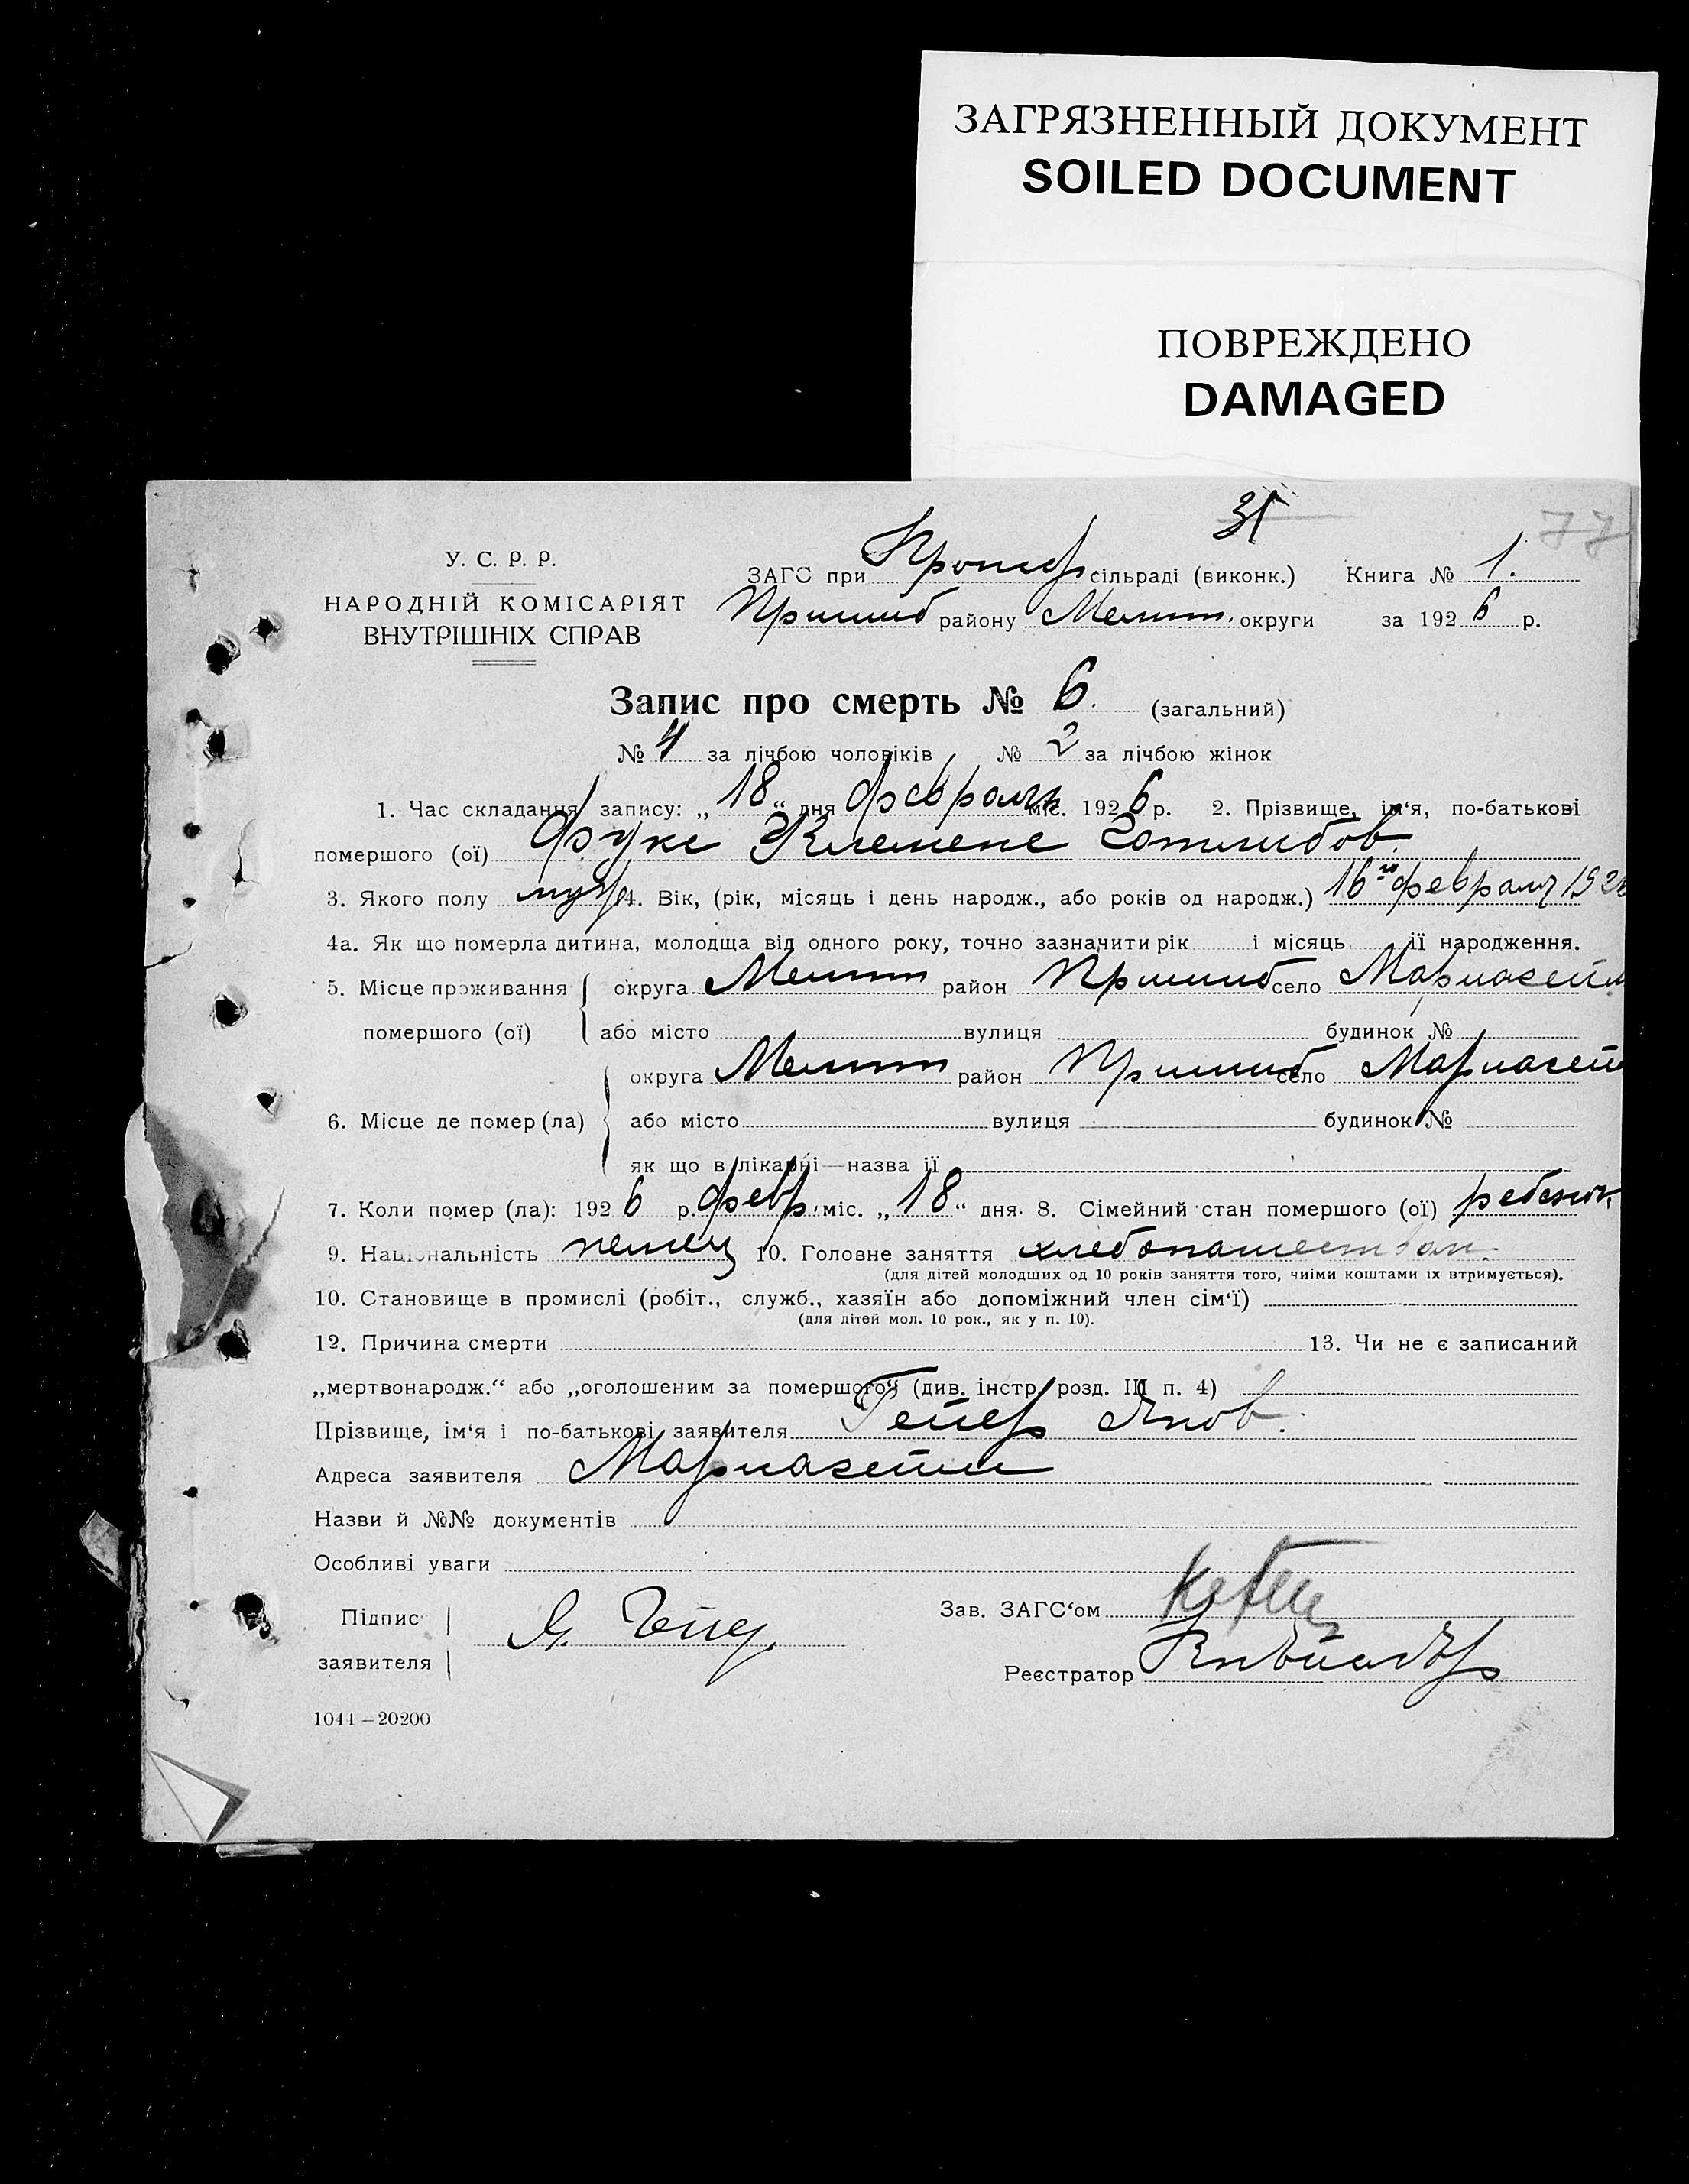 ЗАГРЯЗНЕННЫЙ ДОКУМЕНТ
SOILED DOCUMENT
ПОВРЕЖДЕНО
DAMAGED
31
77
У. С. Р. Р.
НАРОДНІЙ КОМІСАРІЯТ
ВНУТРІШНІХ СПРАВ
ЗАГС при сільраді (виконк.) Книга № 1.
Пришиб району Мелит. округи за 1926 р.
Запис про смерть № 6. (загальний)
№ 4 за лічбою чоловіків № 2 за лічбою жінок
1. Час складання запису: „18“ дня февраля міс. 1926 р. 2. Прізвище, ім‘я, по-батькові
помершого (ої) Фукс Клеменс Готлибов.
3. Якого полу муж 4. Вік, (рік, місяць і день народж., або років од народж.) 16го февраля 1926
4а. Як що померла дитина, молодща від одного року, точно зазначити рік і місяць її народження.
5. Місце проживання округа Мелит район Пришиб село
помершого (ої) або місто вулиця будинок №
округа Мелит район Пришиб село
6. Місце де помер (ла) або місто вулиця будинок №
як що в лікарні—назва її
7. Коли помер (ла): 1926 р. февр. міс. „18“ дня. 8. Сімейний стан помершого (ої) ребенок
9. Національність немец 10. Головне заняття хлебопашеством.
(для дітей молодших од 10 років заняття того, чиїми коштами їх втримується).
10. Становище в промислі (робіт., служб., хазяїн або допоміжний член сім‘ї)
(для дітей мол. 10 рок., як у п. 10).
12. Причина смерти 13. Чи не є записаний
„мертвонародж.“ або „оголошеним за помершого“ (див. інстр. розд. III п. 4)
Прізвище, ім‘я і по-батькові заявителя Гейер Яков.
Адреса заявителя
Назви й №№ документів
Особливі уваги
Підпис
заявителя
Зав. ЗАГС‘ом
Реєстратор
1044—20200